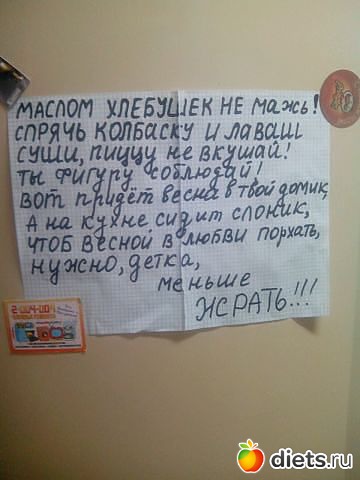 МАСЛОМ ХЛЕБУШЕК НЕ мажь!
СПРЯЧЬ КОЛБАСКУ И ЛАВАШ
СУШИ, ПИЦЦУ НЕ ВКУШАЙ!
ТЫ ФИГУРУ СОБЛЮДАЙ!
ВОТ ПРИДЁТ ВЕСНА В ТВОЙ ДОМИК,
А НА КУХНЕ СИДИТ СЛОНИК,
ЧТОБ ВЕСНОЙ В ЛЮБВИ ПОРХАТЬ,
НУЖНО, ДЕТКА,
МЕНЬШЕ
ЖРАТЬ!!!
2-004-004
diets.ru